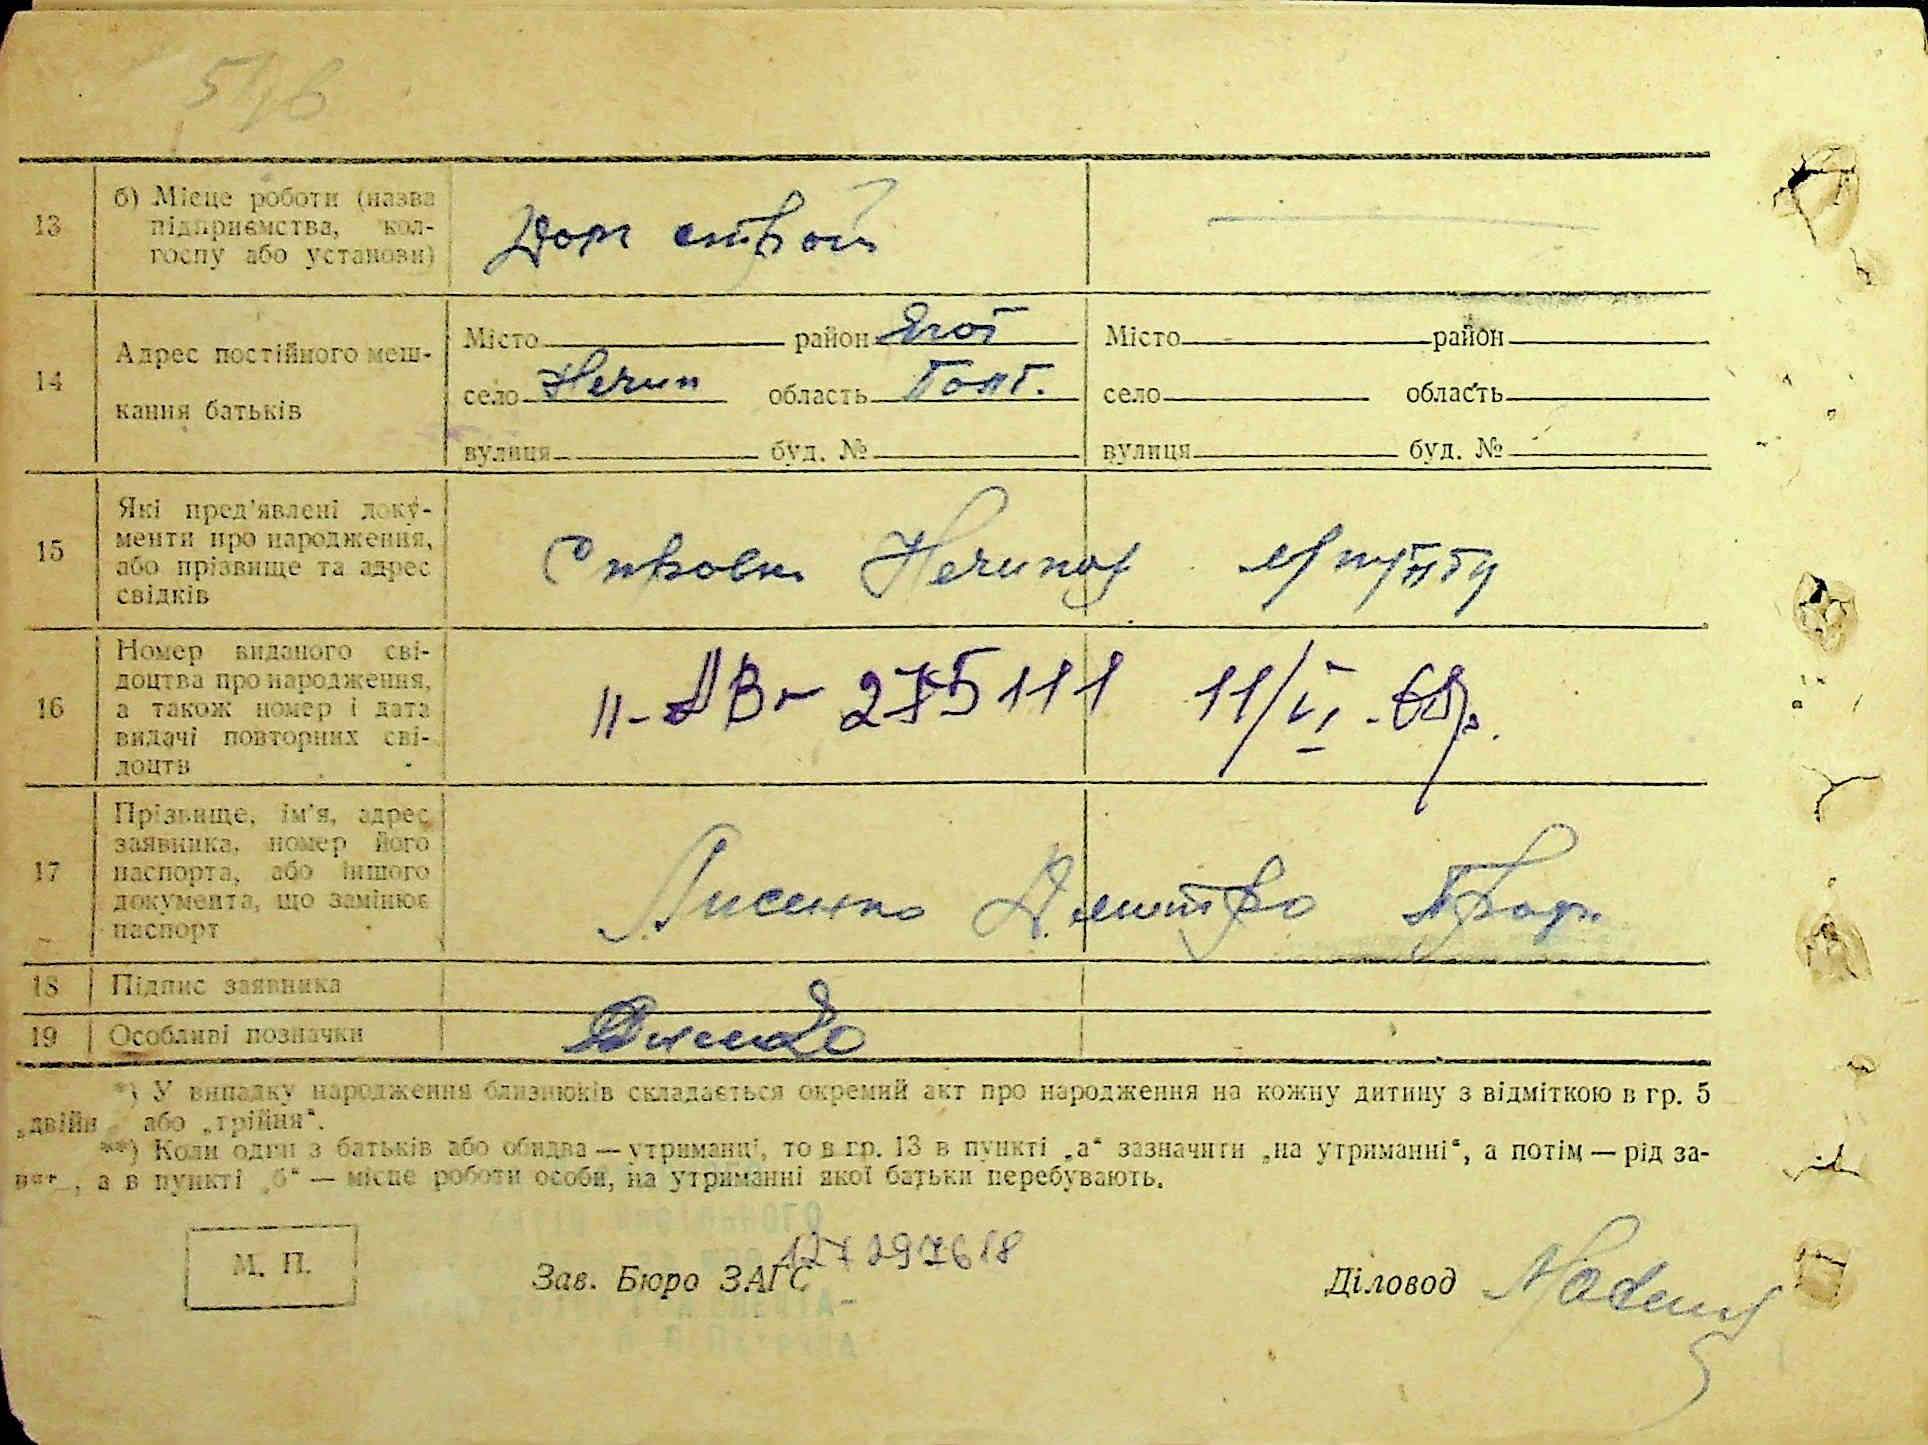 546
13 б) Місце роботи (назва підприємства, кол-
госпу або установи) Дор строй
14 Адрес постійного меш-
кання батьків
Місто район Ягот
село область Полт.
вулиця буд. №
Місто район
село область
вулиця буд. №
15 Які пред'явлені доку-
менти про народження,
або прізвище та адрес
свідків
16 Номер виданого сві-
доцтва про народження,
а також номер і дата
видачі повторних сві-
доцтв
II-АВ № 275111 11/VI-60р.
17 Прізвище, ім'я, адрес
заявника, номер його
паспорта, або іншого
документа, що замінює
паспорт
Лисенко Дмитро
18 Підпис заявника
19 Особливі позначки
Лисенко
*) У випадку народження близнюків складається окремий акт про народження на кожну дитину з відміткою в гр. 5
„двійня" або „трійня".
**) Коли один з батьків або обидва — утриманці, то в гр. 13 в пункті „а" зазначити „на утриманні", а потім — рід за-
, а в пункті „б" — місце роботи особи, на утриманні якої батьки перебувають.
М. П.
Зав. Бюро ЗАГС
Діловод